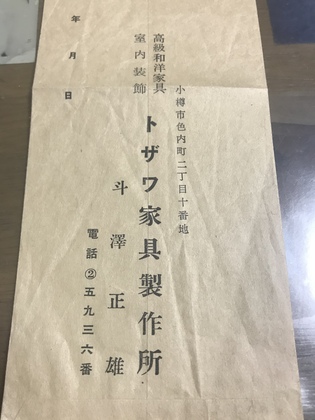 小樽市色内町二丁目十番地
高級和洋家具
室内装飾
トザワ家具製作所
斗澤正雄
電話②五九三六番
年月日